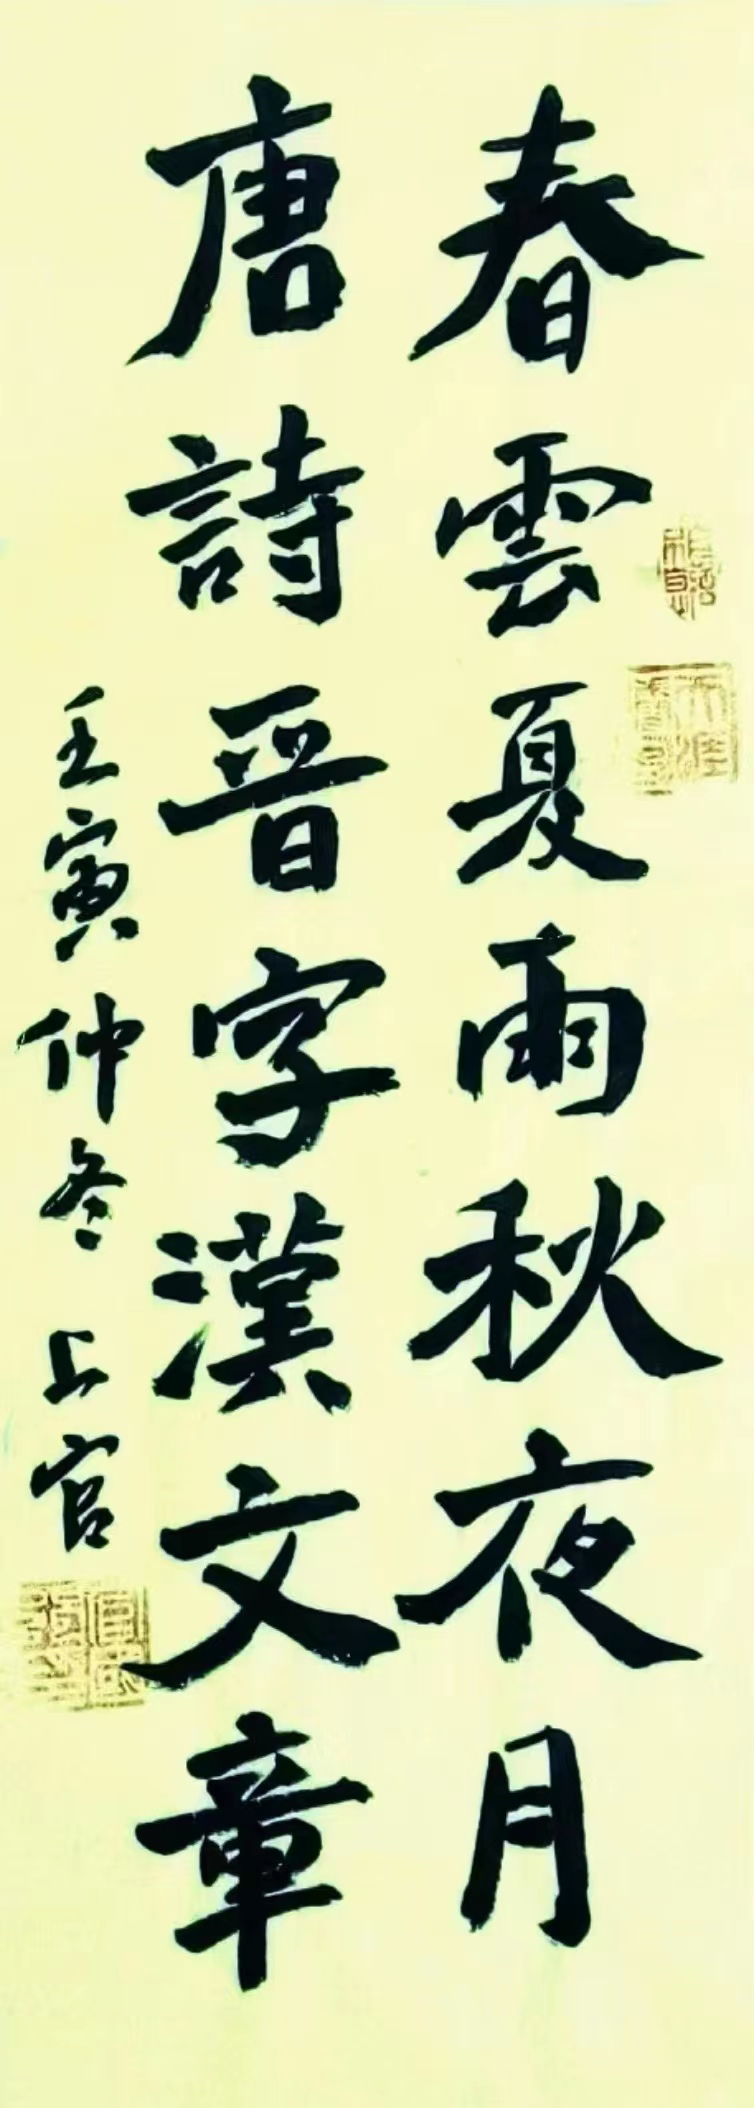 春雲夏雨秋夜月
唐詩晉字漢文章
壬寅仲冬上官